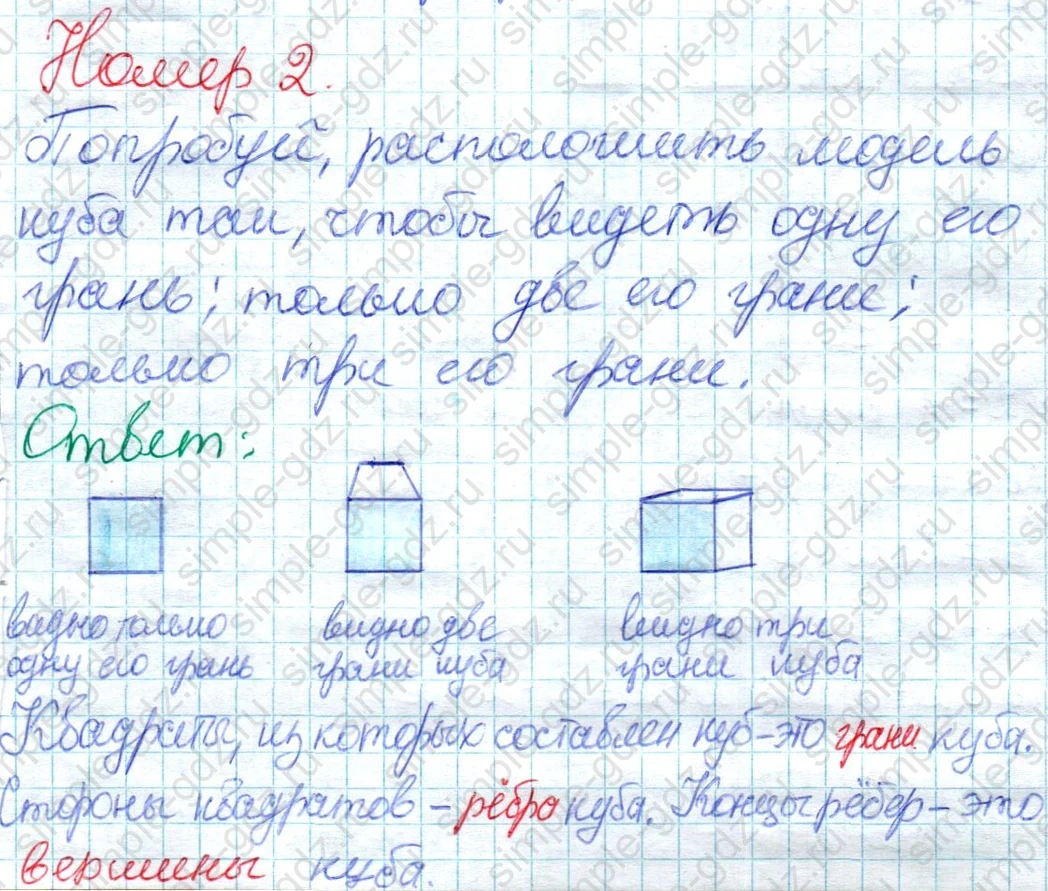 Номер 2.
Попробуй, расположить модель
куба так, чтобы видеть одну его
грань; только две его грани;
только три его грани.
Ответ:
видно только видно две видно три
одну его грань грани куба грани куба
Квадраты, из которых составлен куб-это грани куба.
Стороны квадратов - рёбра куба. Концы рёбер - это
вершины куба.
simple-gdz.ru